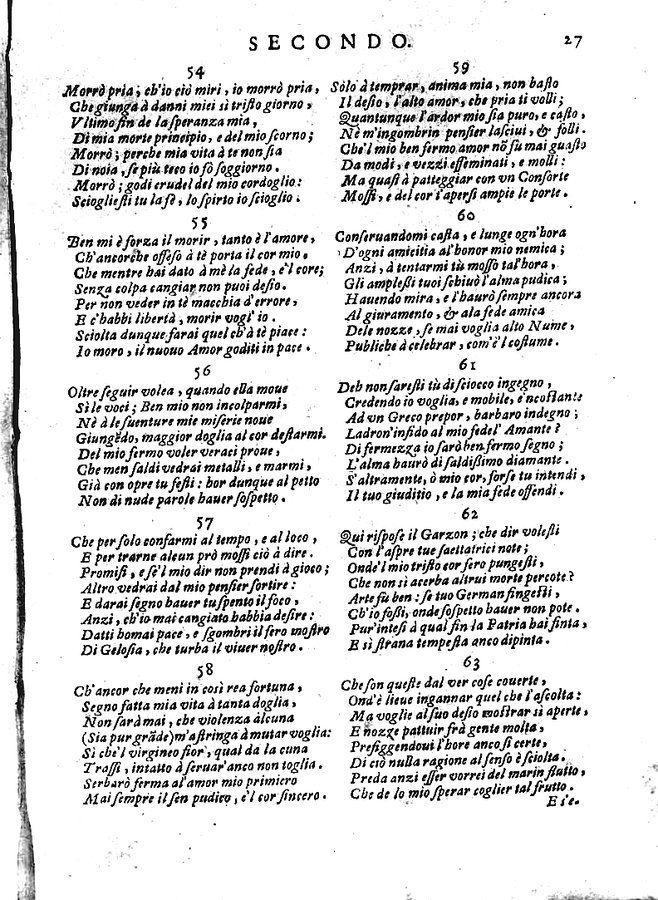 SECONDO. 27
54
Morrò pria; ch'io ciò miri, io morrò pria,
Che giunga à danni miei sì tristo giorno,
Vltimo fin de la speranza mia,
Di mia morte principio, e del mio scorno;
Morrò; perche mia vita à te non sia
Di noia, se più teco io fò soggiorno.
Morrò; godi crudel del mio cordoglio:
Sciogliesti tu la fè, lo spirto io scioglio.
55
Ben mi è forza il morir, tanto è l'amore,
Ch'ancorche offeso à tè porta il cor mio.
Che mentre hai dato à mè la fede, e'l core;
Senza colpa cangiar non puoi desio.
Per non veder in tè macchia d'errore,
E c'habbi libertà, morir vogl'io.
Sciolta dunque farai quel ch'à tè piace:
Io moro, il nuouo Amor goditi in pace.
56
Oltre seguir volea, quando ella moue
Sì le voci; Ben mio non incolparmi,
Nè à le suenture mie miserie noue
Giungēdo, maggior doglia al cor destarmi.
Del mio fermo voler veraci proue,
Che men saldi vedrai metalli, e marmi,
Già con opre tu festi: hor dunque al petto
Non di nude parole hauer sospetto.
57
Che per solo confarmi al tempo, e al loco,
E per trarne alcun prò mossi ciò à dire.
Promisi, e se'l mio dir non prendi à gioco;
Altro vedrai dal mio pensier sortire:
E darai segno hauer tu spento il foco,
Anzi, ch'io mai cangiato habbia desire:
Datti homai pace, e sgombri il fero mostro
Di Gelosia, che turba il viuer nostro.
58
Ch'ancor che meni in così rea fortuna,
Segno fatta mia vità à tanta doglia,
Non sarà mai, che violenza alcuna
(Sia pur grāde) m'astringa à mutar voglia:
Sì che'l virgineo fior, qual da la cuna
Trassi, intatto à seruar'anco non toglia.
Serbarò ferma al'amor mio primiero
Mai sempre il sen pudico, e'l cor sincero.
59
Solo à temprar, anima mia, non basto
Il desio, l'alto amor, che pria ti volli;
Quantunque l'ardor mio sia puro, e casto,
Nè m'ingombrin pensier lasciui, & folli.
Che'l mio ben fermo amor nō fù mai guasto
Da modi, e vezzi effeminati, e molli:
Ma quasi à patteggiar con vn Consorte
Mossi, e del cor t'apersi ampie le porte.
60
Conseruandomi casta, e lunge ogn'hora
D'ogni amicitia al honor mio nemica;
Anzi, à tentarmi tù mosso tal'hora,
Gli amplessi tuoi schiuò l'alma pudica;
Hauendo mira, e l'haurò sempre ancora
Al giuramento, & ala fede amica
Dele nozze, se mai voglia alto Nume,
Publiche à celebrar, com'è l costume.
61
Deh non saresti tù di sciocco ingegno,
Credendo io voglia, e mobile, e'ncostante
Ad vn Greco prepor, barbaro indegno;
Ladron'infido al mio fedel' Amante?
Di fermezza io sarò ben fermo segno;
L'alma haurò di saldißimo diamante.
S'altramente, ò mio cor, forse tu intendi,
Il tuo giuditio, e la mia fede offendi.
62
Qui rispose il Garzon; che dir volesti
Con l'aspre tue saettatrici note;
Onde'l mio tristo cor fero pungesti,
Che non sì acerba altrui morte percote?
Arte fù ben: se tuo German fingesti,
Ch'io fossi, onde sospetto hauer non pote.
Pur'intesi à qual fin la Patria hai finta,
E sì strana tempesta anco dipinta.
63
Che son queste dal ver cose couerte,
Ond'è lieue ingannar quel che l'ascolta:
Ma voglie al suo desio mostrar sì aperte,
E nozze pattuir frà gente molta,
Prefiggendoui l'hore anco sì certe,
Di ciò nulla ragione al senso è sciolta.
Preda anzi esser vorrei del marin flutto,
Che de lo mio sperar coglier tal frutto.
E s'e.